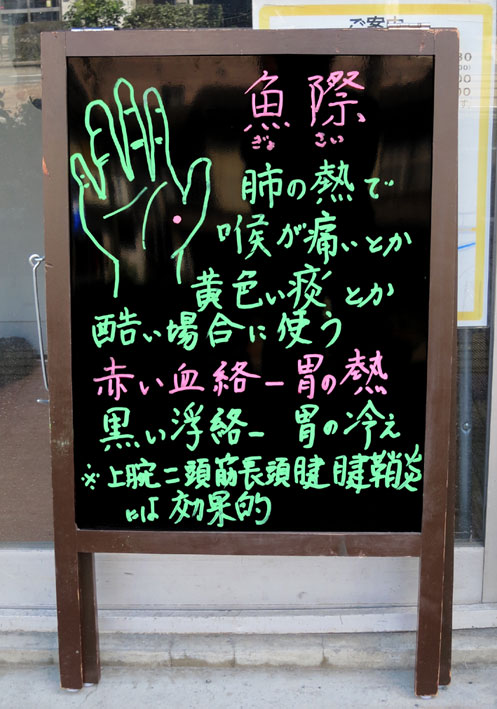 ご案内
魚際
ぎょ さい
肺の熱で
喉が痛いとか
黄色い痰とか
酷い場合に使う
赤い血絡ー胃の熱
黒い浮絡ー胃の冷え
※上腕二頭筋長頭腱腱鞘炎
には効果的